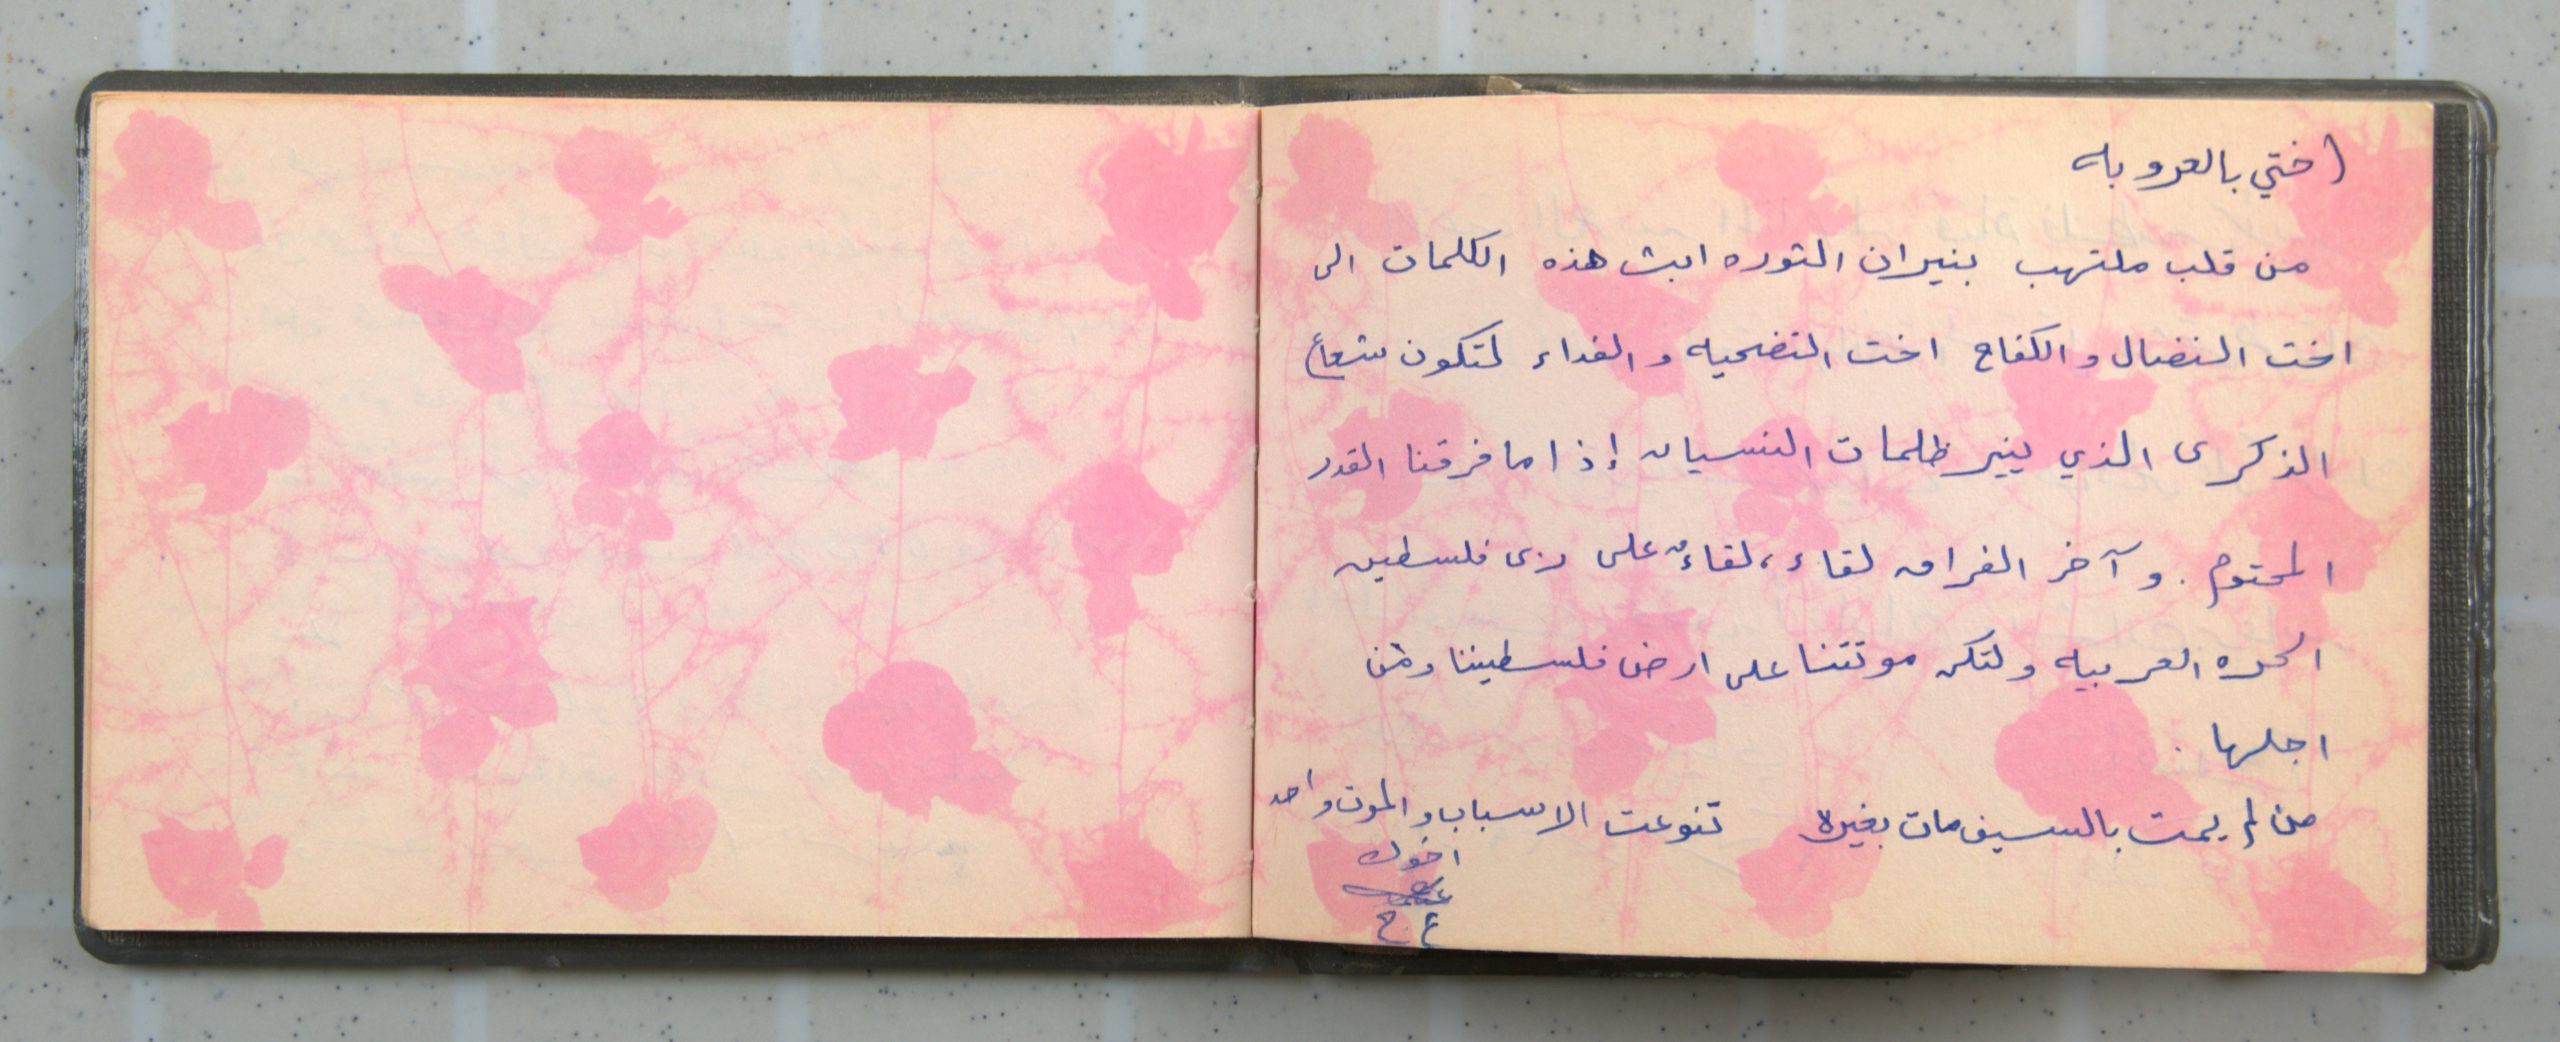 اختي بالعروبه
من قلب ملتهب بنيران الثوره ابث هذه الكلمات الى
اخت النضال والكفاح اخت التضحيه والفداء لتكون شعاع
الذكرى الذي ينير ظلمات النسيان إذا ما فرقنا القدر
المحتوم . وآخر الفراق لقاء ، لقاءٌ على ربى فلسطين
الحره العربيه ولتكن موتتنا على ارض فلسطيننا ومن
اجلها .
من لم يمت بالسيف مات بغيره تنوعت الاسباب والموت واحد
اخوك
ع . ح